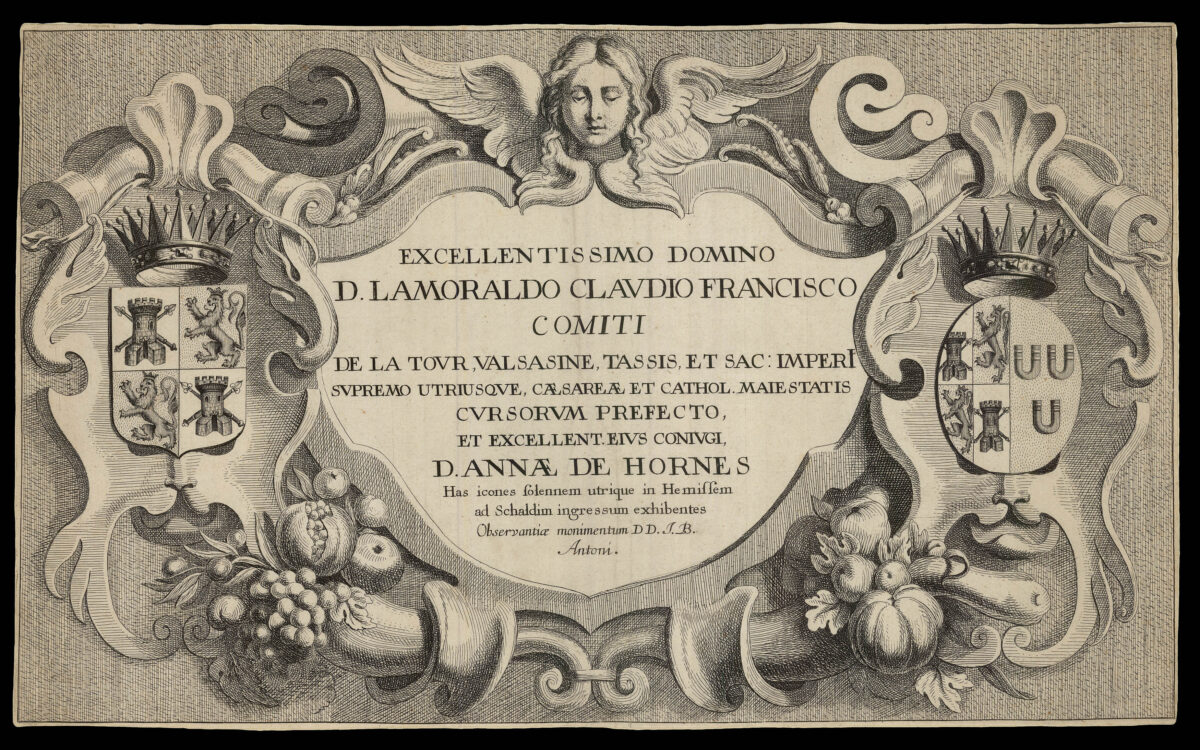 EXCELLENTISSIMO DOMINO
D. LAMORALDO CLAVDIO FRANCISCO
COMITI
DE LA TOVR, VALSASINE, TASSIS, ET SAC: IMPERI
SVPREMO UTRIUSQVE, CÆSAREÆ ET CATHOL. MAIESTATIS
CVRSORVM PREFECTO,
ET EXCELLENT. EIVS CONIVGI,
D. ANNÆ DE HORNES
Has icones ſolennem utrique in Hemiſſem
ad Schaldim ingressum exhibentes
Observantiæ monimentum D D. J. B.
Antoni.